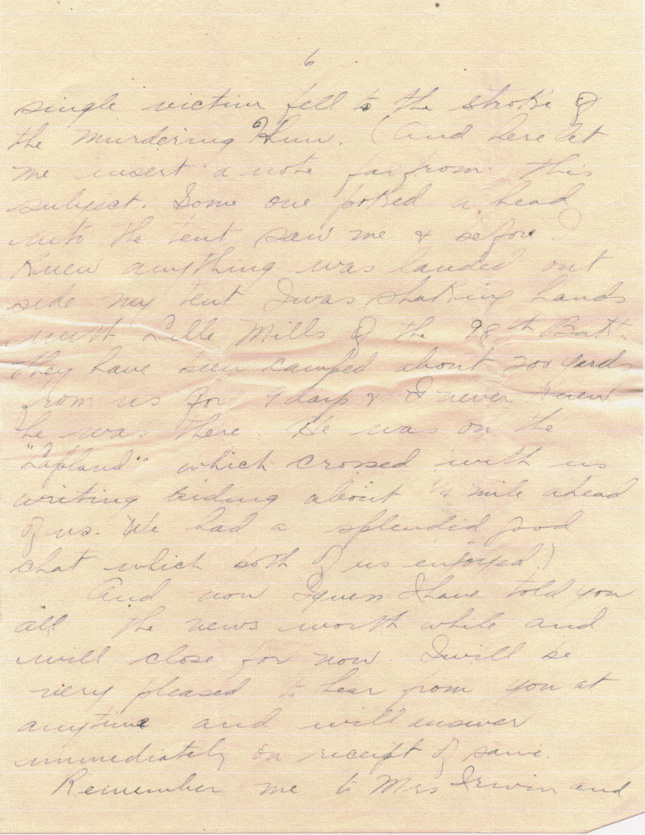 6
single victim fell to the stroke of
the murdering Hun. (And here let
me insert a note far from this
subject. Some one poked a head
into the tent saw me & before I
knew anything was landed out
side my tent I was shaking hands
with Lille Mills of the 98th Batt.
They have been camped about 200 yards
from us for 9 days & I never knew
he was there. He was on the
"Lapland" which crossed with us
writing riding about 1/4 mile ahead
of us. We had a splendid good
chat which both of us enjoyed.)
And now I guess I have told you
all the news worth while and
will close for now. I will be
very pleased to hear from you at
anytime and will answer
immediately on receipt of same.
Remember me to Mrs Irwin and